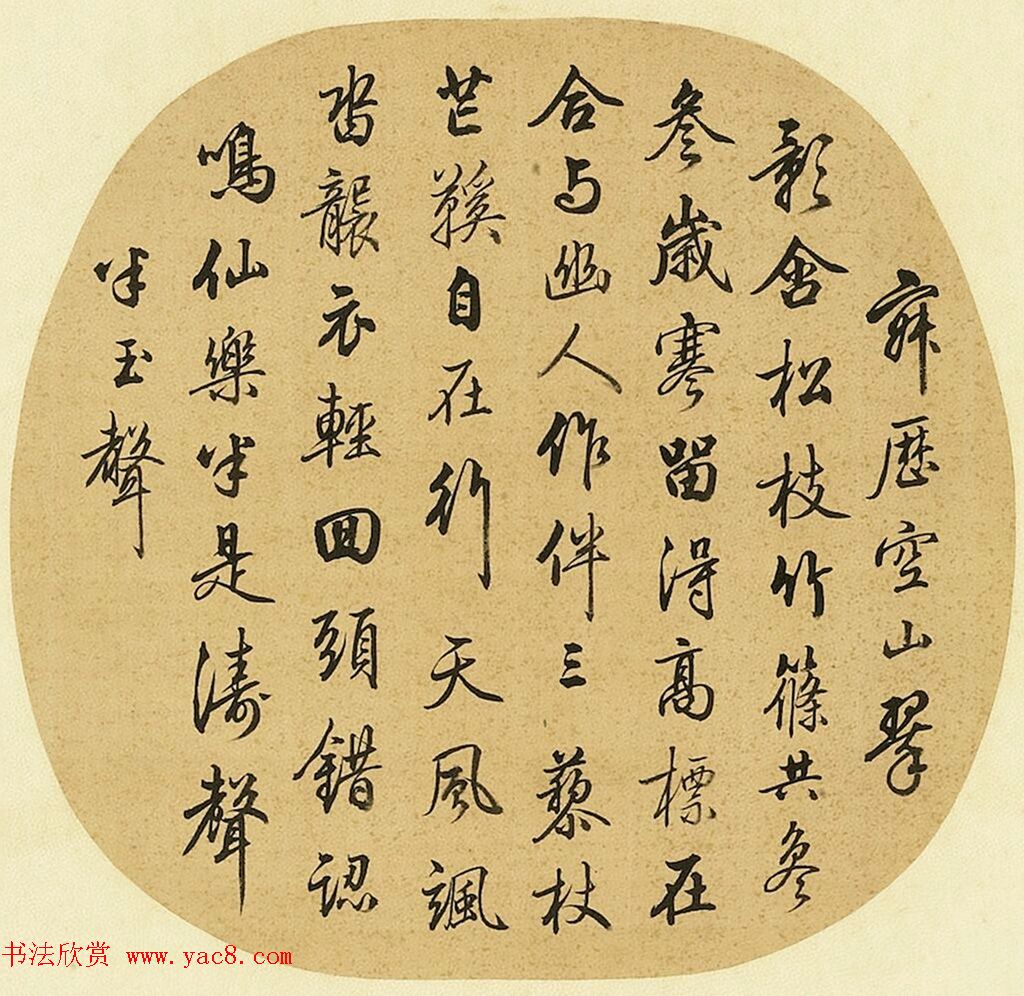 寂歷空山翠
影含松枝竹篠共參
參歲寒留得高標在
合与幽人作伴三藜杖
芒鞵自在行天風颯
沓襲衣輕回頭錯認
鳴仙樂半是濤聲
半玉聲
书法欣赏 www.yac8.com